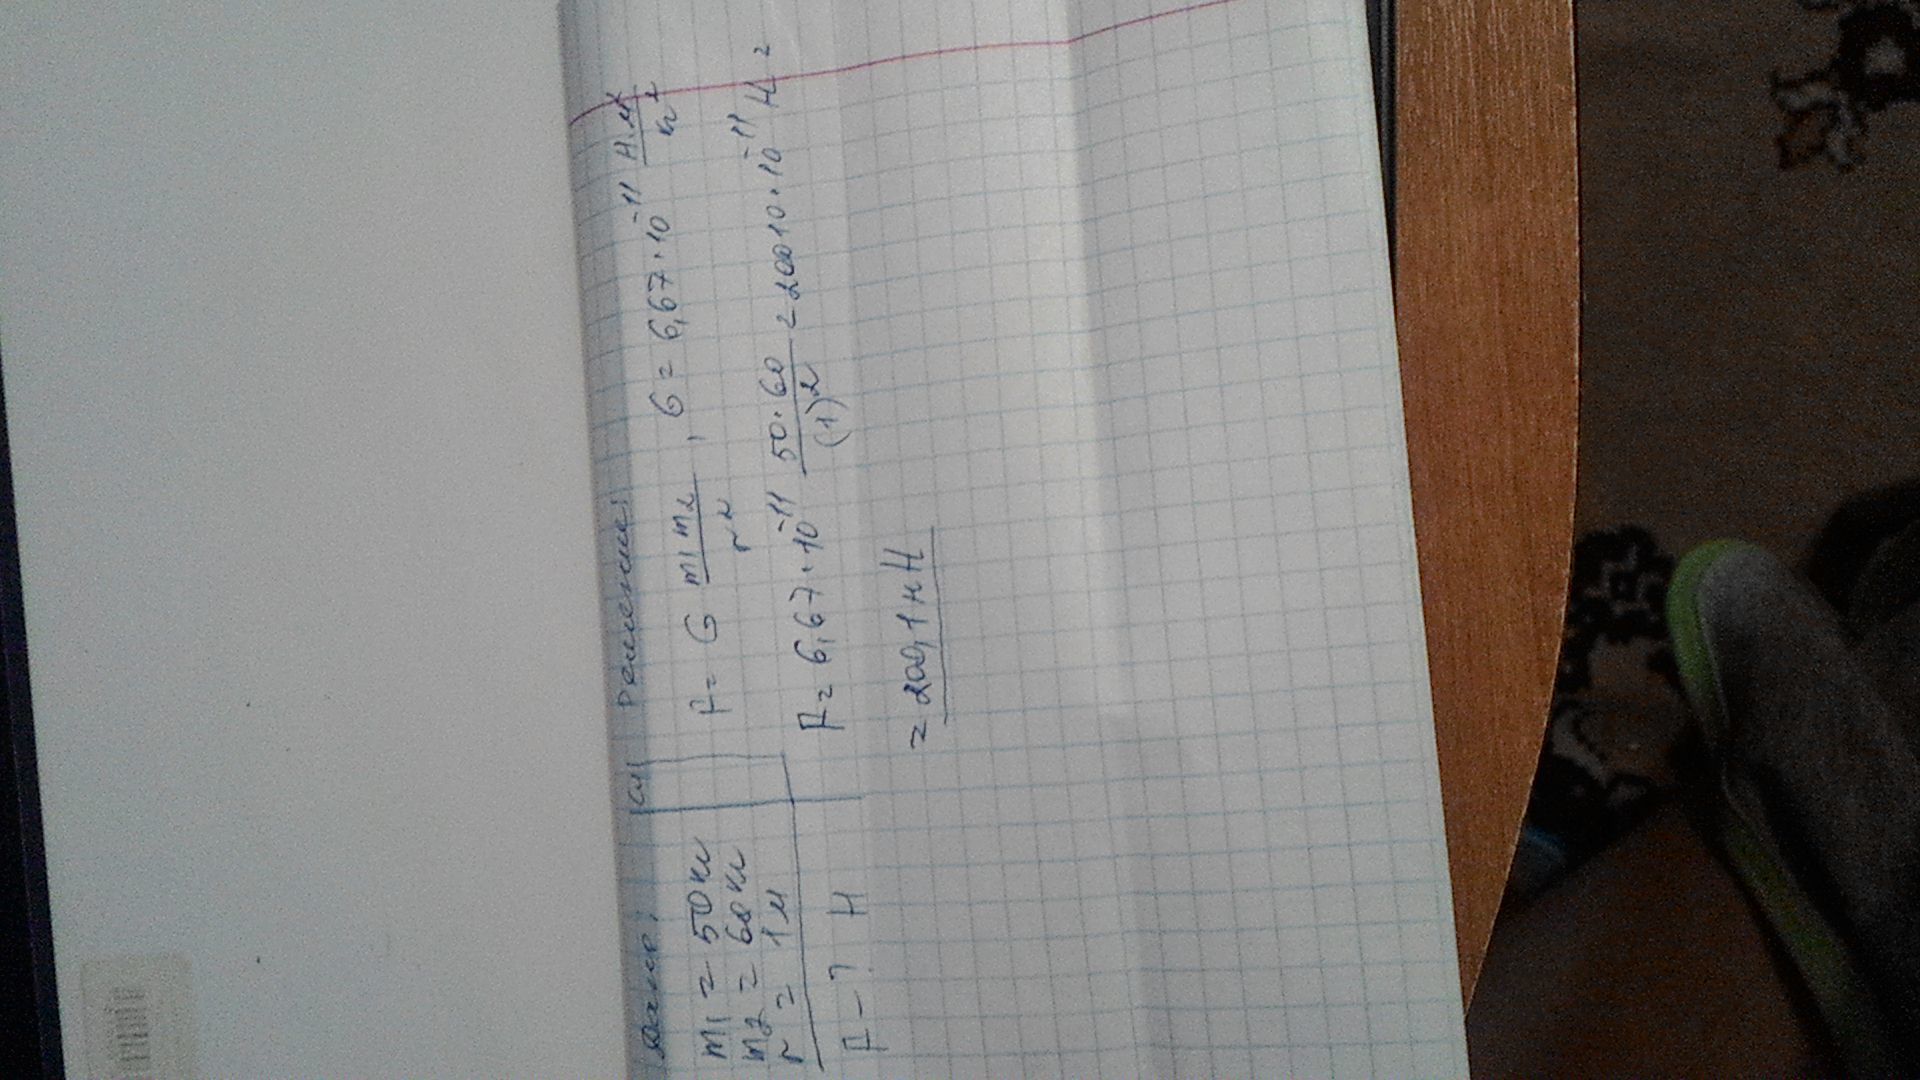 Дано:
m1 = 50 кг
m2 = 60 кг
r = 1 м
F - ? Н
СИ
Решение:
F = G m1 m2 / r² , G = 6,67 · 10⁻¹¹ Н·м² / кг²
F = 6,67 · 10⁻¹¹ 50·60 / (1)² = 20010 · 10⁻¹¹ Н =
= 200,1 нН